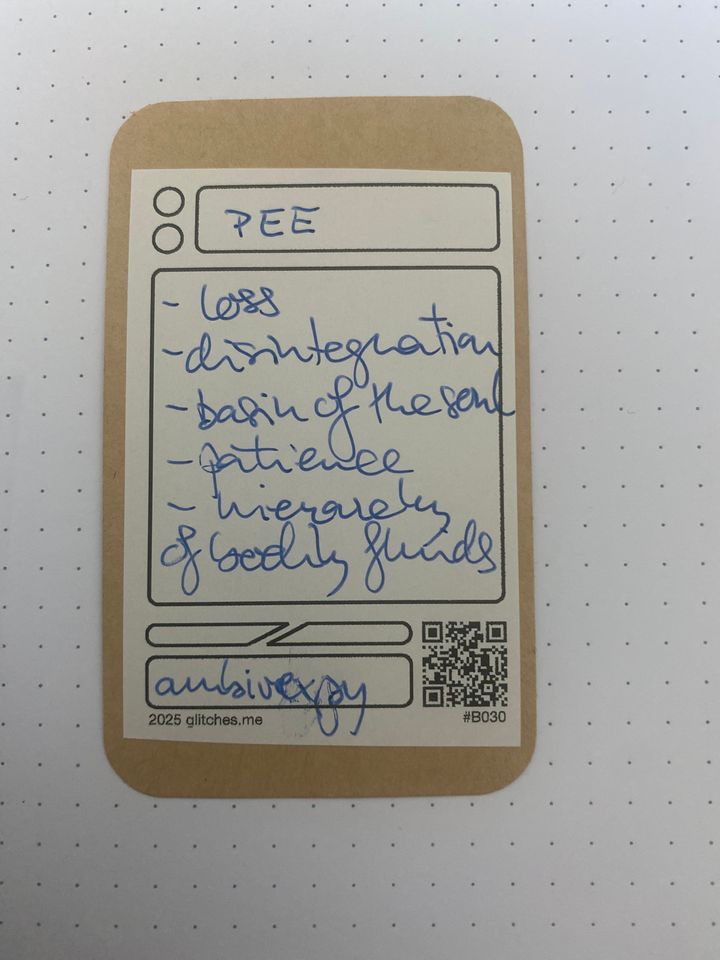 PEE
- loss
- disintegration
- basin of the soul
- patience
- hierarchy
of bodily fluids
2025 glitches.me
#B030